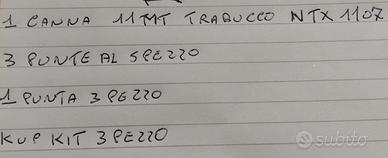 1 CANNA 11MT TRABUCCO NTX 1107
3 PUNTE AL 5PEZZO
1 PUNTA 3 PEZZO
KUP KIT 3 PEZZO
subito